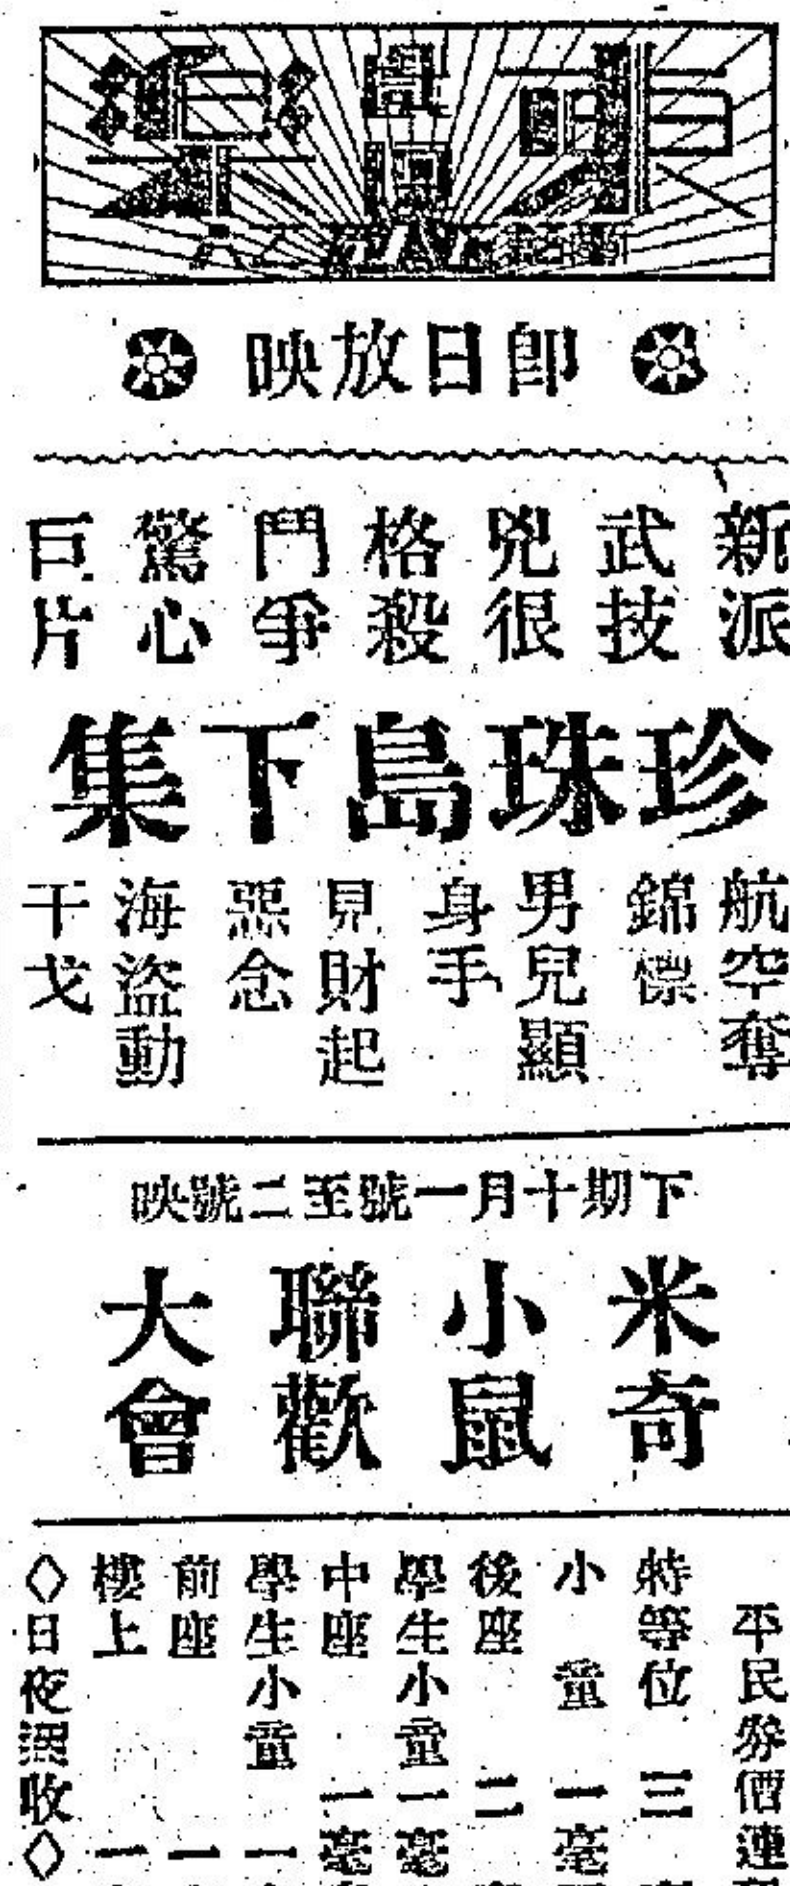 即日放映
新派
武技
兇很
格殺
鬥爭
驚心
巨片
珍珠島下集
航空奪
錦標
男兒顯
身手
見財起
惡念
海盜動
干戈
下期十月一號至二號映
米奇
小鼠
聯歡
大會
平民券價連
特等位 三
小童 一毫
後座 二
學生小童 一毫
中座 一毫
學生小童 一
前座 一
樓上 一
◇日夜照收◇